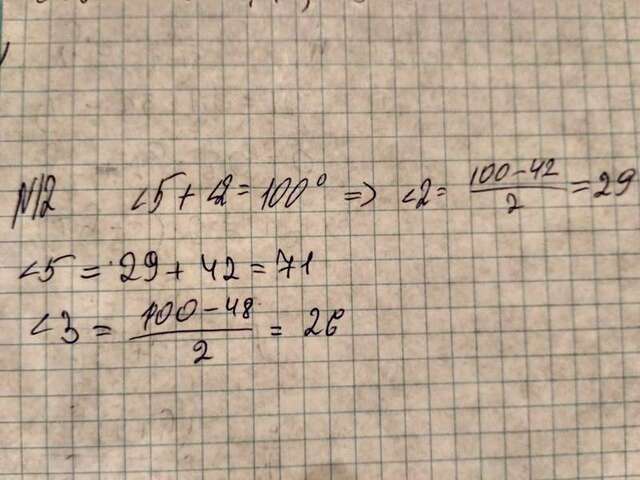 N12 <5 + <2 = 100° => <2 = (100-42)/2 = 29
<5 = 29 + 42 = 71
<3 = (100-48)/2 = 26